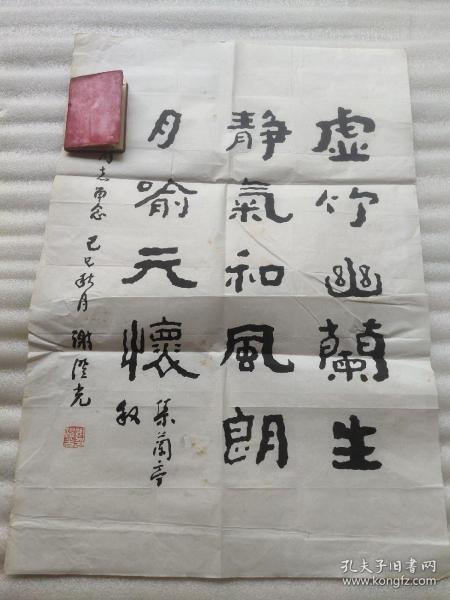 虚竹幽蘭生
静氣和風朗
月喻元懷
集蘭亭
叙
同志留念 己巳秋月 謝澄光
孔夫子旧书网
www.kongfz.com